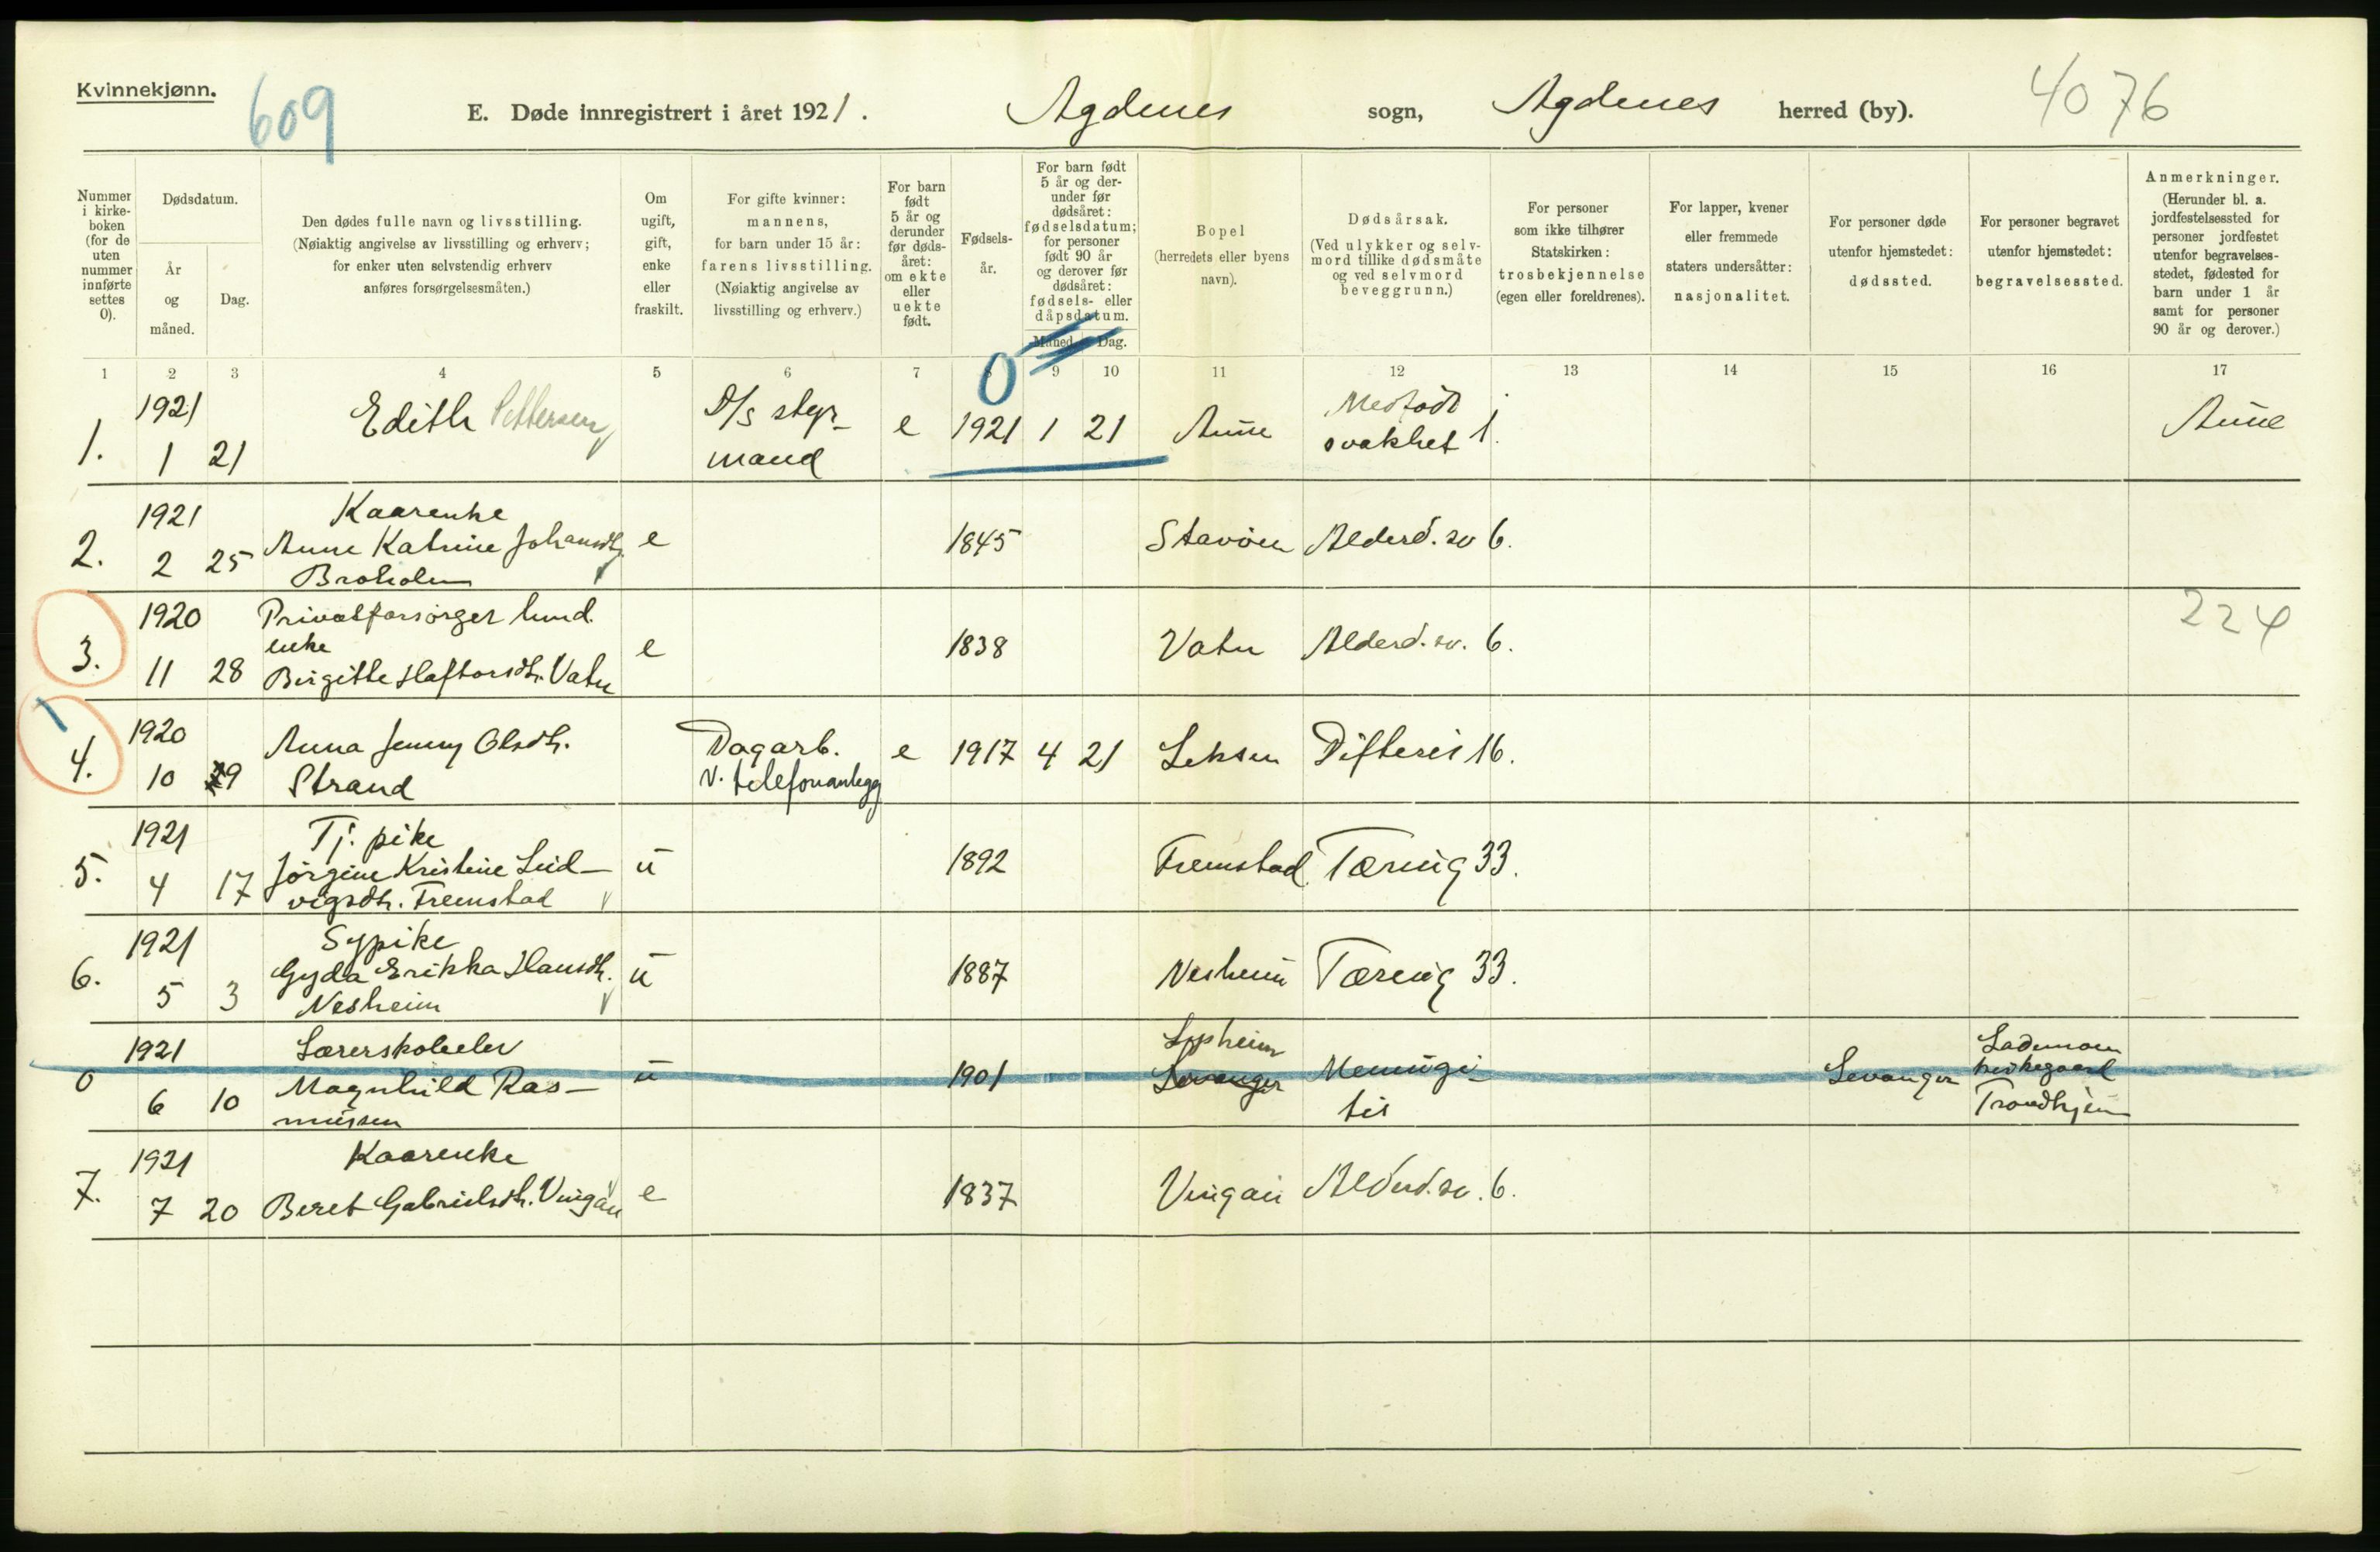 Kvinnekjønn.
609
E. Døde innregistrert i året 1921. Agdenes sogn, Agdenes herred (by).
4076
Nummer i kirkeboken (for de uten nummer innførte settes 0).
Dødsdatum.
År og måned.
Dag.
Den dødes fulle navn og livsstilling.
(Nøiaktig angivelse av livsstilling og erhverv;
for enker uten selvstendig erhverv
anføres forsørgelsesmåten.)
Om
ugift,
gift,
enke
eller
fraskilt.
For gifte kvinner:
mannens,
for barn under 15 år:
farens livsstilling.
(Nøiaktig angivelse av
livsstilling og erhverv.)
For barn
født
5 år og
derunder
før døds-
året:
om ekte
eller
uekte
født.
Fødsels-
år.
For barn født
5 år og der-
under før
dødsåret:
fødselsdatum;
for personer
født 90 år
og derover før
dødsåret:
fødsels- eller
dåpsdatum.
Måned. Dag.
Bopel
(herredets eller byens
navn).
Dødsårsak.
(Ved ulykker og selv-
mord tillike dødsmåte
og ved selvmord
beveggrunn.)
For personer
som ikke tilhører
Statskirken:
trosbekjennelse
(egen eller foreldrenes).
For lapper, kvener
eller fremmede
staters undersåtter:
nasjonalitet.
For personer døde
utenfor hjemstedet:
dødssted.
For personer begravet
utenfor hjemstedet:
begravelsessted.
Anmerkninger.
(Herunder bl. a.
jordfestelsessted for
personer jordfestet
utenfor begravelses-
stedet, fødested for
barn under 1 år
samt for personer
90 år og derover.)
1 2 3 4 5 6 7 8 9 10 11 12 13 14 15 16 17
0
1. 1921 1 21 Edith Pettersen D/S styr-
mand e 1921 1 21 Aune Medfødt
svakhet 1. Aune
2. 1921 2 25 Kaarenke
Anne Katrine Johansdtr.
Broholm e 1845 Stavøen Alderd. sv 6.
3. 1920 11 28 Privatforsørget hund.
enke
Birgitte Haftorsdtr. Vatn e 1838 Vatn Alderd. sv. 6. 224
4. 1920 10 29 Anna Jenny Olsdtr.
Strand Dagarb.
v. telefonanlegg e 1917 4 21 Leksen Difteri 16.
5. 1921 4 17 Tj. pike
Jørgine Kristine Lud-
vigsdtr. Fremstad u 1892 Fremstad Tæring 33.
6. 1921 5 3 Sypike
Gyda Erikka Hansdtr.
Nesheim u 1887 Nesheim Tæring 33.
0 1921 6 10 Lærerskoleelev
Magnhild Ras-
mussen u 1901 Levanger Meningi-
tis Levanger Lademoen
kirkegaard
Trondhjem
7. 1921 7 20 Kaarenke
Beret Gabrielsdtr. Vingan e 1837 Vingan Alderd. sv. 6.